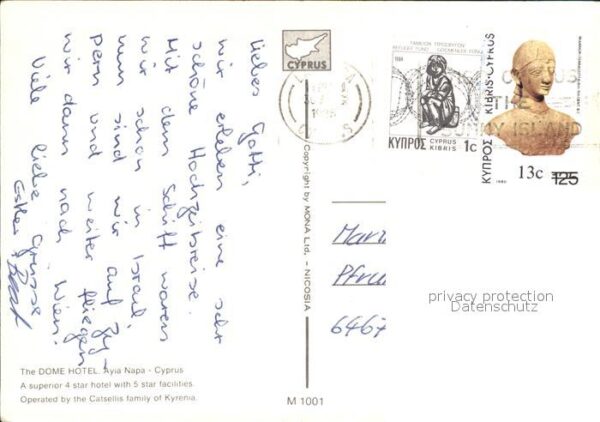 Liebes Gotti,
wir erleben eine sehr
schöne Hochzeitsreise.
Mit dem Schiff waren
wir schon in Israel,
nun sind wir auf Zy-
pern und weiter fliegen
wir dann nach Wien.
Viele liebe Grüsse
Esther
CYPRUS
ΤΑΜΕΙΟΝ ΠΡΟΣΦΥΓΩΝ
REFUGEE FUND
1984
ΚΥΠΡΟΣ
CYPRUS
KIBRIS
1c
ΚΥΠΡΟΣ KIBRIS-CYPRUS
13c 125
THE
SUNNY ISLAND
Copyright by MONA Ltd. - NICOSIA
Pfru
6467
privacy protection
Datenschutz
The DOME HOTEL, Ayia Napa - Cyprus
A superior 4 star hotel with 5 star facilities.
Operated by the Catsellis family of Kyrenia.
M 1001